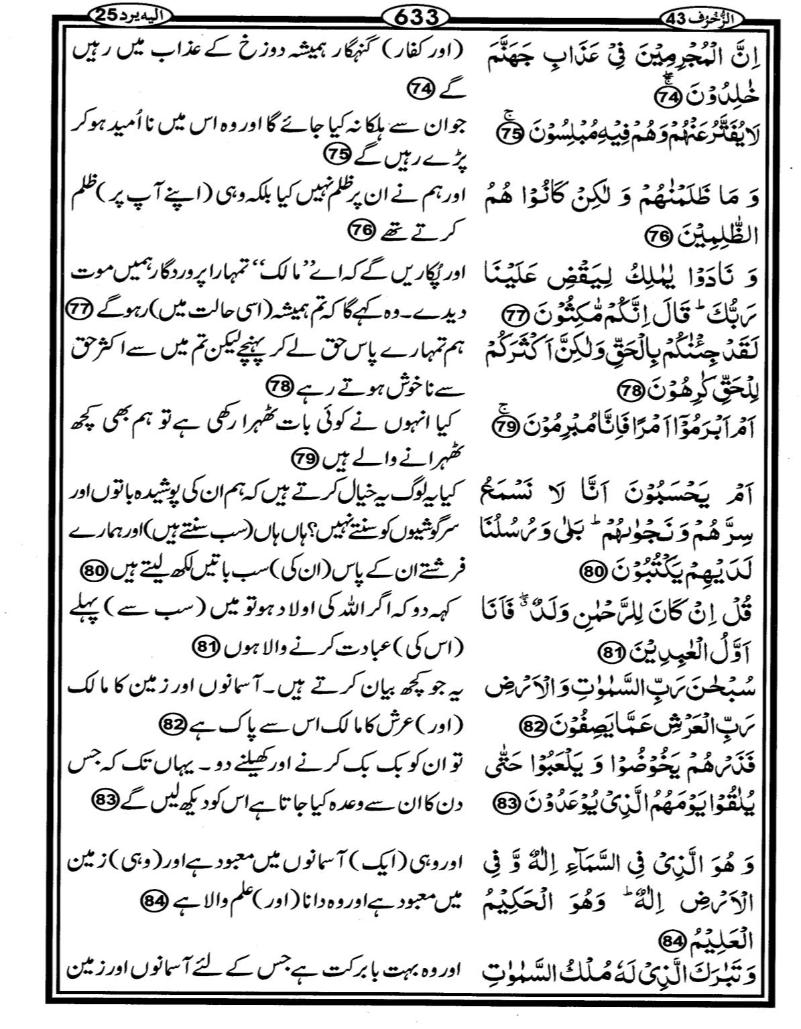 الزّخرُف 43
633
الیه یرد 25
اِنَّ الْمُجْرِمِيْنَ فِيْ عَذَابِ جَهَنَّمَ
خٰلِدُوْنَ ۚۖ 74
لَا يُفَتَّرُ عَنْهُمْ وَهُمْ فِيْهِ مُبْلِسُوْنَ ۚ 75
وَ مَا ظَلَمْنٰهُمْ وَ لٰكِنْ كَانُوْا هُمُ
الظّٰلِمِيْنَ 76
وَ نَادَوْا يٰمٰلِكُ لِيَقْضِ عَلَيْنَا
رَبُّكَ ؕ قَالَ اِنَّكُمْ مّٰكِثُوْنَ 77
لَقَدْ جِئْنٰكُمْ بِالْحَقِّ وَلٰكِنَّ اَكْثَرَكُمْ
لِلْحَقِّ كٰرِهُوْنَ 78
اَمْ اَبْرَمُوْۤا اَمْرًا فَاِنَّا مُبْرِمُوْنَ ۚ 79
اَمْ يَحْسَبُوْنَ اَنَّا لَا نَسْمَعُ
سِرَّهُمْ وَ نَجْوٰىهُمْ ؕ بَلٰى وَ رُسُلُنَا
لَدَيْهِمْ يَكْتُبُوْنَ 80
قُلْ اِنْ كَانَ لِلرَّحْمٰنِ وَلَدٌ ۖۗ فَاَنَا
اَوَّلُ الْعٰبِدِيْنَ 81
سُبْحٰنَ رَبِّ السَّمٰوٰتِ وَ الْاَرْضِ
رَبِّ الْعَرْشِ عَمَّا يَصِفُوْنَ 82
فَذَرْهُمْ يَخُوْضُوْا وَ يَلْعَبُوْا حَتّٰى
يُلٰقُوْا يَوْمَهُمُ الَّذِيْ يُوْعَدُوْنَ 83
وَ هُوَ الَّذِيْ فِي السَّمَآءِ اِلٰهٌ وَّ فِي
الْاَرْضِ اِلٰهٌ ؕ وَهُوَ الْحَكِيْمُ
الْعَلِيْمُ 84
وَ تَبٰرَكَ الَّذِيْ لَهٗ مُلْكُ السَّمٰوٰتِ
(اور کفار) گنہگار ہمیشہ دوزخ کے عذاب میں رہیں
گے 74
جو ان سے ہلکا نہ کیا جائے گا اور وہ اس میں نا اُمید ہو کر
پڑے رہیں گے 75
اور ہم نے ان پر ظلم نہیں کیا بلکہ وہی (اپنے آپ پر) ظلم
کرتے تھے 76
اور پُکاریں گے کہ اے ”مالک“ تمہارا پروردگار ہمیں موت
دیدے۔ وہ کہے گا کہ تم ہمیشہ (اسی حالت میں) رہو گے 77
ہم تمہارے پاس حق لے کر پہنچے لیکن تم میں سے اکثر حق
سے نا خوش ہوتے رہے 78
کیا انہوں نے کوئی بات ٹھہرا رکھی ہے تو ہم بھی کچھ
ٹھہرانے والے ہیں 79
کیا یہ لوگ یہ خیال کرتے ہیں کہ ہم ان کی پوشیدہ باتوں اور
سرگوشیوں کو سنتے نہیں؟ ہاں ہاں (سب سنتے ہیں) اور ہمارے
فرشتے ان کے پاس (ان کی) سب باتیں لکھ لیتے ہیں 80
کہہ دو کہ اگر اللہ کی اولاد ہو تو میں (سب سے) پہلے
(اس کی) عبادت کرنے والا ہوں 81
یہ جو کچھ بیان کرتے ہیں۔ آسمانوں اور زمین کا مالک
(اور) عرش کا مالک اس سے پاک ہے 82
تو ان کو بک بک کرنے اور کھیلنے دو ۔ یہاں تک کہ جس
دن کا ان سے وعدہ کیا جاتا ہے اس کو دیکھ لیں گے 83
اور وہی (ایک) آسمانوں میں معبود ہے اور (وہی) زمین
میں معبود ہے اور وہ دانا (اور) علم والا ہے 84
اور وہ بہت بابرکت ہے جس کے لئے آسمانوں اور زمین